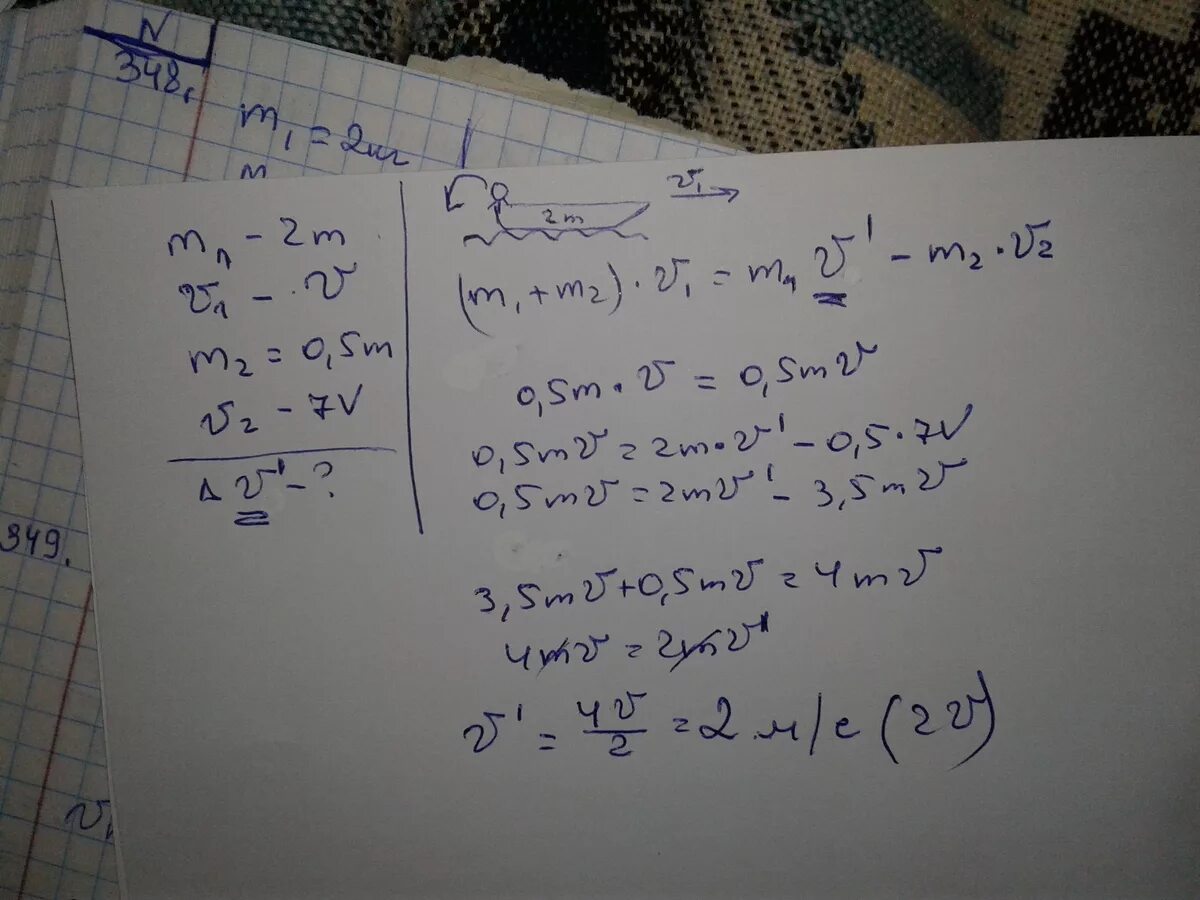 N
348.
m₁ = 2кг
m
m₁ - 2m
v₁ - v
m₂ = 0,5m
v₂ - 7V
Δ v' - ?
349.
2m
v₁
(m₁ + m₂) · v₁ = m₁ v' - m₂ · v₂
0,5m · v = 0,5mv
0,5mv = 2m · v' - 0,5 · 7V
0,5mv = 2mv' - 3,5mv
3,5mv + 0,5mv = 4mv
4mv = 2mv'
v' = 4v/2 = 2 м/с (2v)